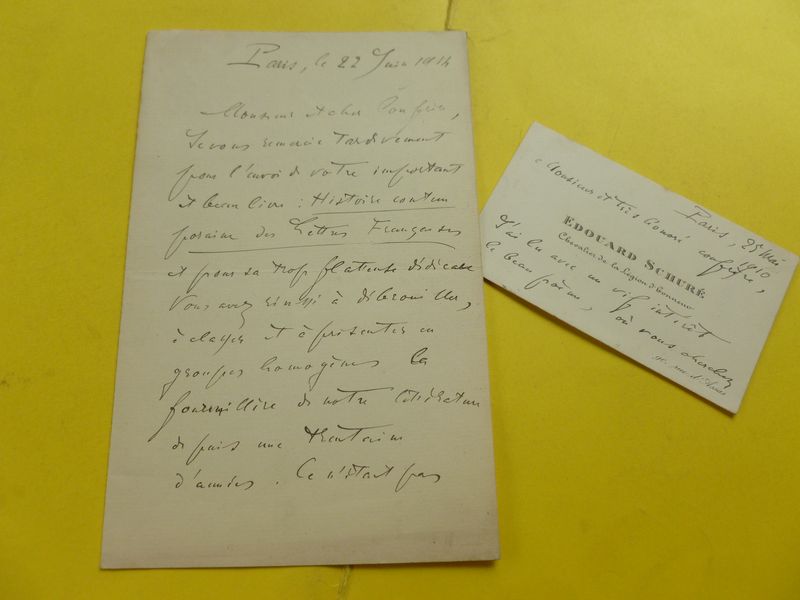 Paris, le 22 Juin 1914
Monsieur et cher Confrère,
Je vous remercie tardivement
pour l'envoi de votre important
et beau livre : Histoire contem
poraine des Lettres Françaises
et pour sa trop flatteuse dédicace
Vous avez réussi à débrouiller,
à classer et à présenter en
groupes homogènes la
fourmillière de notre littérature
depuis une trentaine
d'années. Ce n'étant pas
Paris, 25 Mai
1910
Monsieur et très honoré confrère,
EDOUARD SCHURÉ
Chevalier de la Légion d'honneur
J'ai lu avec un vif intérêt
le beau poème, où vous cherchez
rue d'Assas